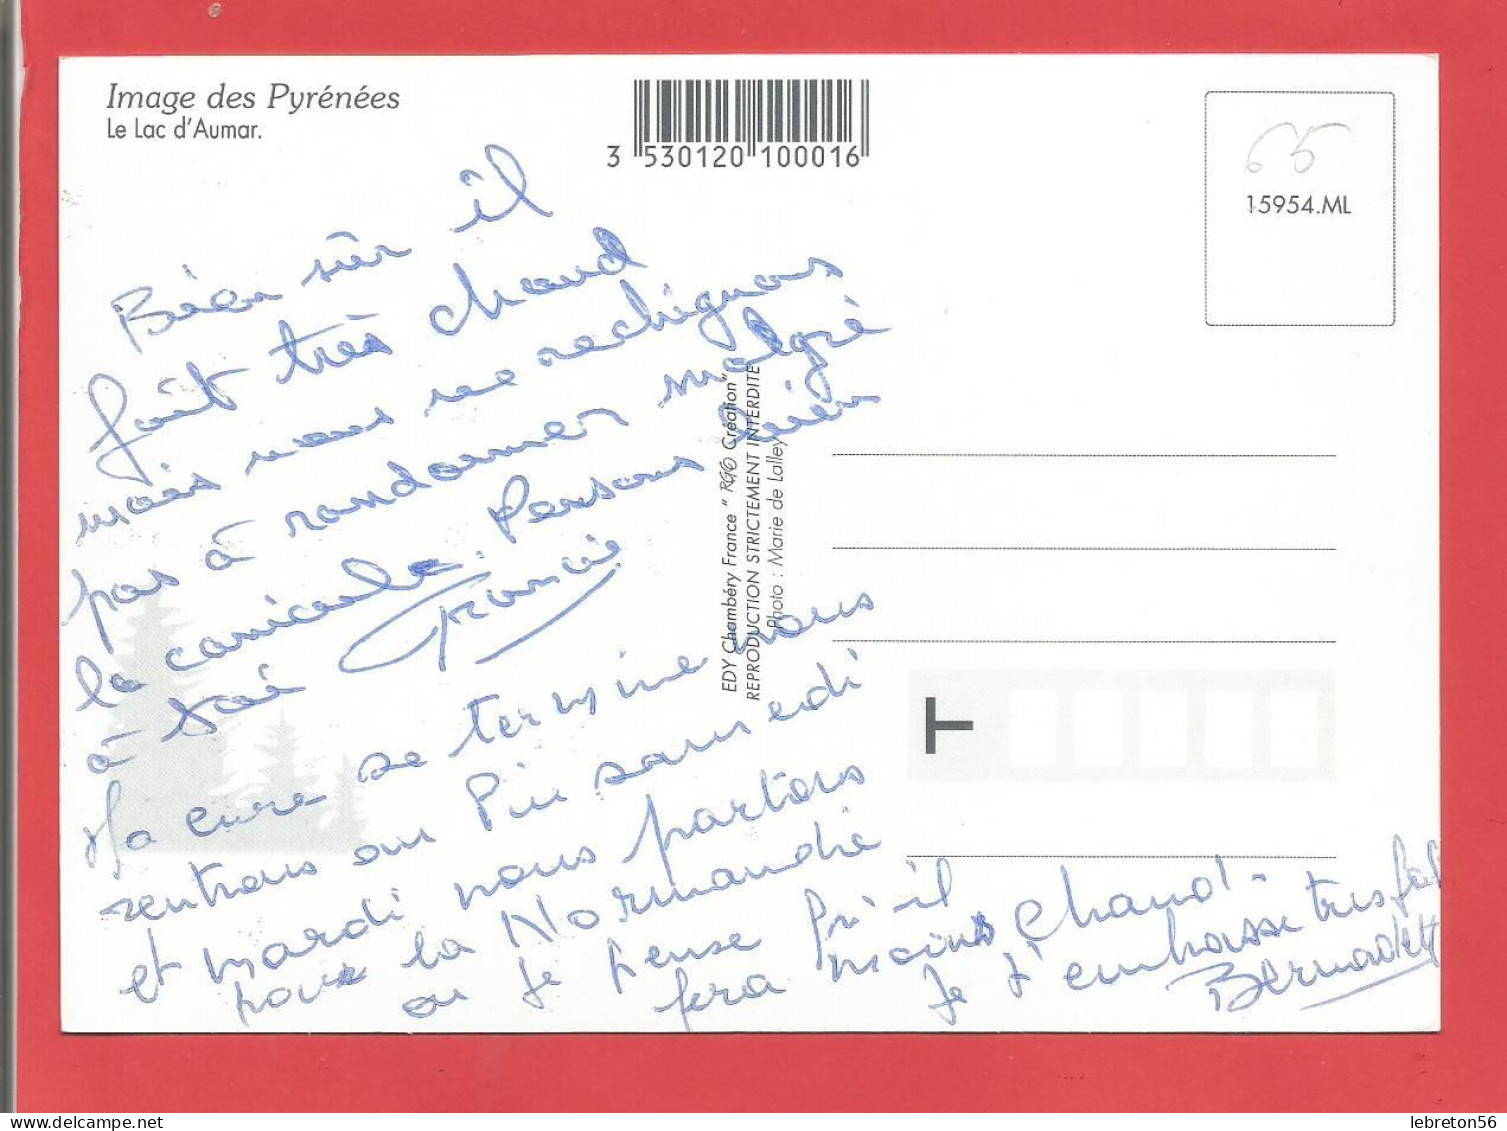 Image des Pyrénées
Le Lac d'Aumar.
3 530120 100016
65
15954.ML
Bien sûr il
fait très chaud
mais nous ne rechignons
pas à randonner malgré
la canicule. Pensons bien
à toi Francie
Ma cure se termine nous
rentrons au Pin samedi
et mardi nous partons
pour la Normandie
ou je pense qu'il
fera moins chaud.
Je t'embrasse tres fort
Bernadette
EDY Chambéry France "RGO Création"
REPRODUCTION STRICTEMENT INTERDITE
Photo : Marie de Lalley
T
delcampe.net
lebreton56